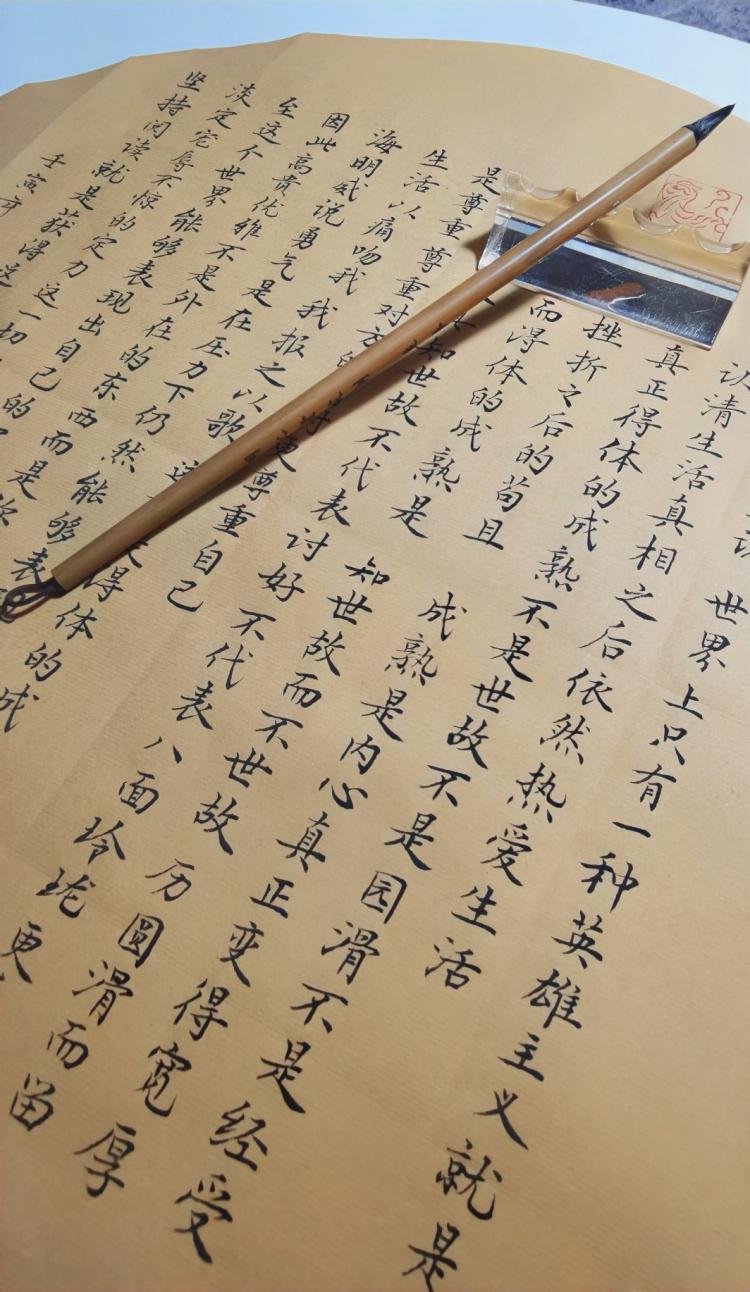 世界上只有一种英雄主义就是
认清生活真相之后依然热爱生活
真正得体的成熟不是世故不是园滑不是经受
挫折之后的苟且 成熟是内心真正变得宽厚
而得体的成熟是 知世故而不世故 历圆滑而留
知世故不代表讨好不代表八面玲珑更
是尊重尊重对方的 好更尊重自己
生活以痛吻我我报之以歌
海明威说勇气是在压力下仍然能够表 得体的成
因此高贵优雅不是外在的东西而是你
至这个世界能够表现出自己的
淡定宠辱不惊的定力这一切
坚持阅读就是获得这
壬寅年